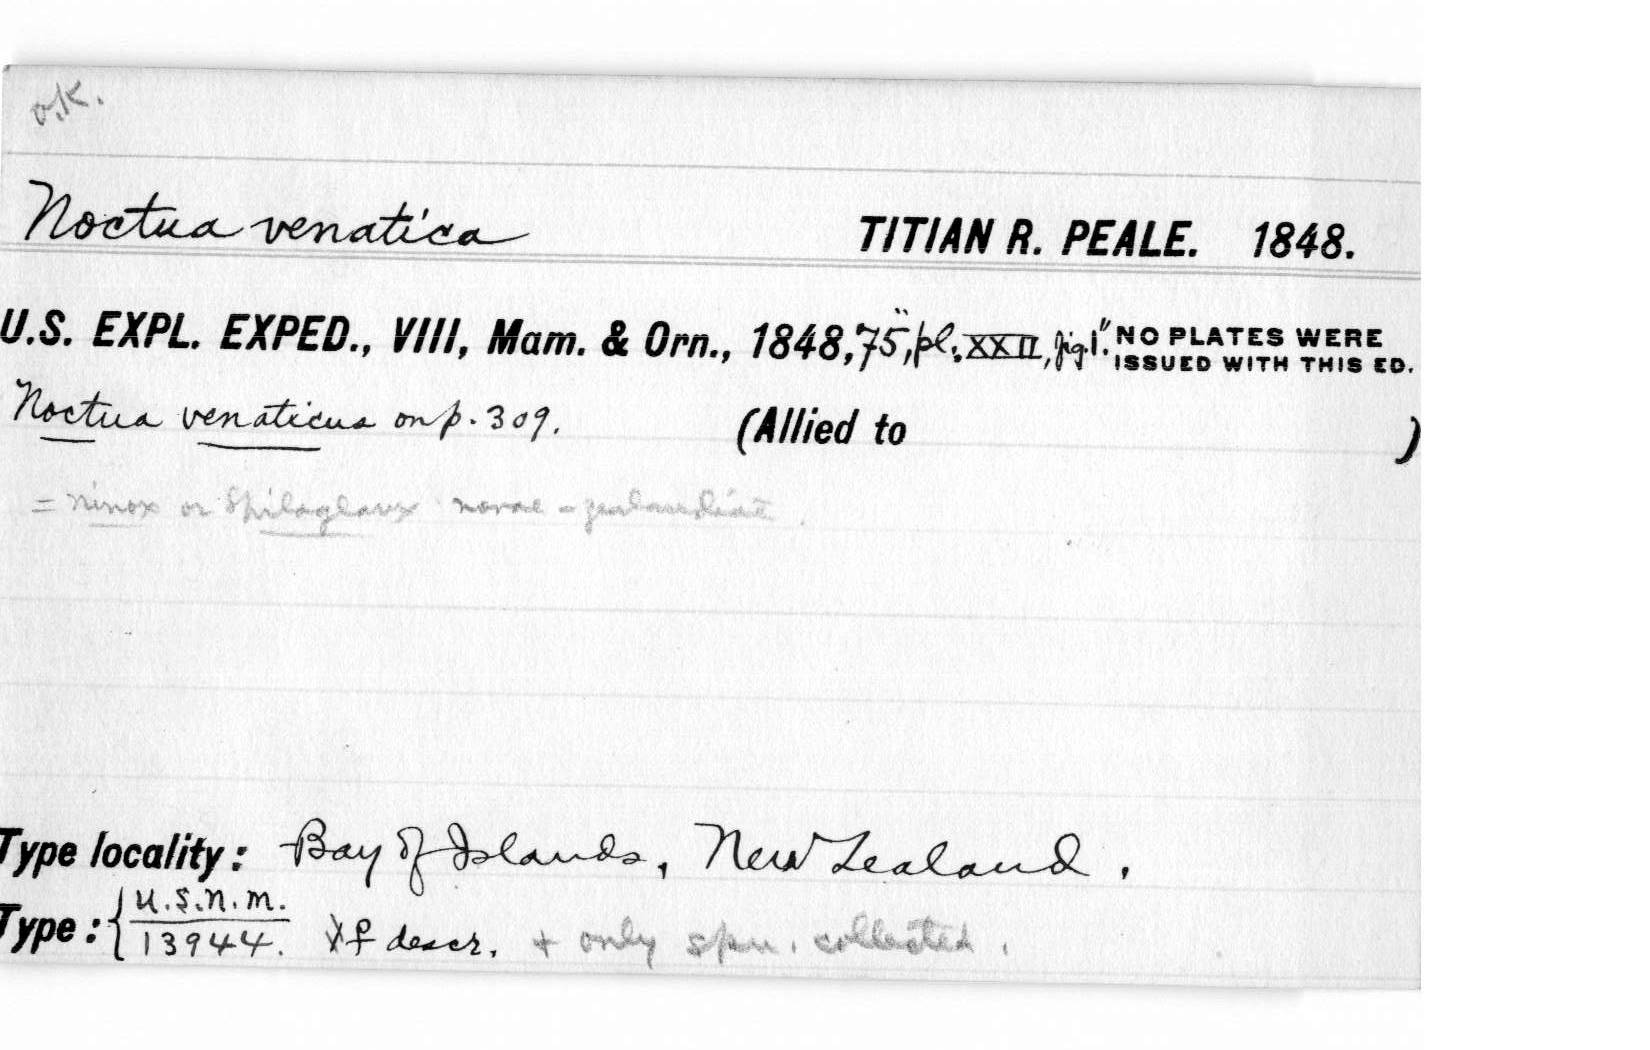 o.K.
Noctua venatica TITIAN R. PEALE. 1848.
U.S. EXPL. EXPED., VIII, Mam. & Orn., 1848, 75, "pl. XXII, fig. 1." NO PLATES WERE ISSUED WITH THIS ED.
Noctua venaticus on p. 309. (Allied to )
= Ninox or Spiloglaux novae-zealandiae.
Type locality: Bay of Islands, New Zealand.
Type: { U.S.N.M. 13944. ♀ descr. + only spn. collected.